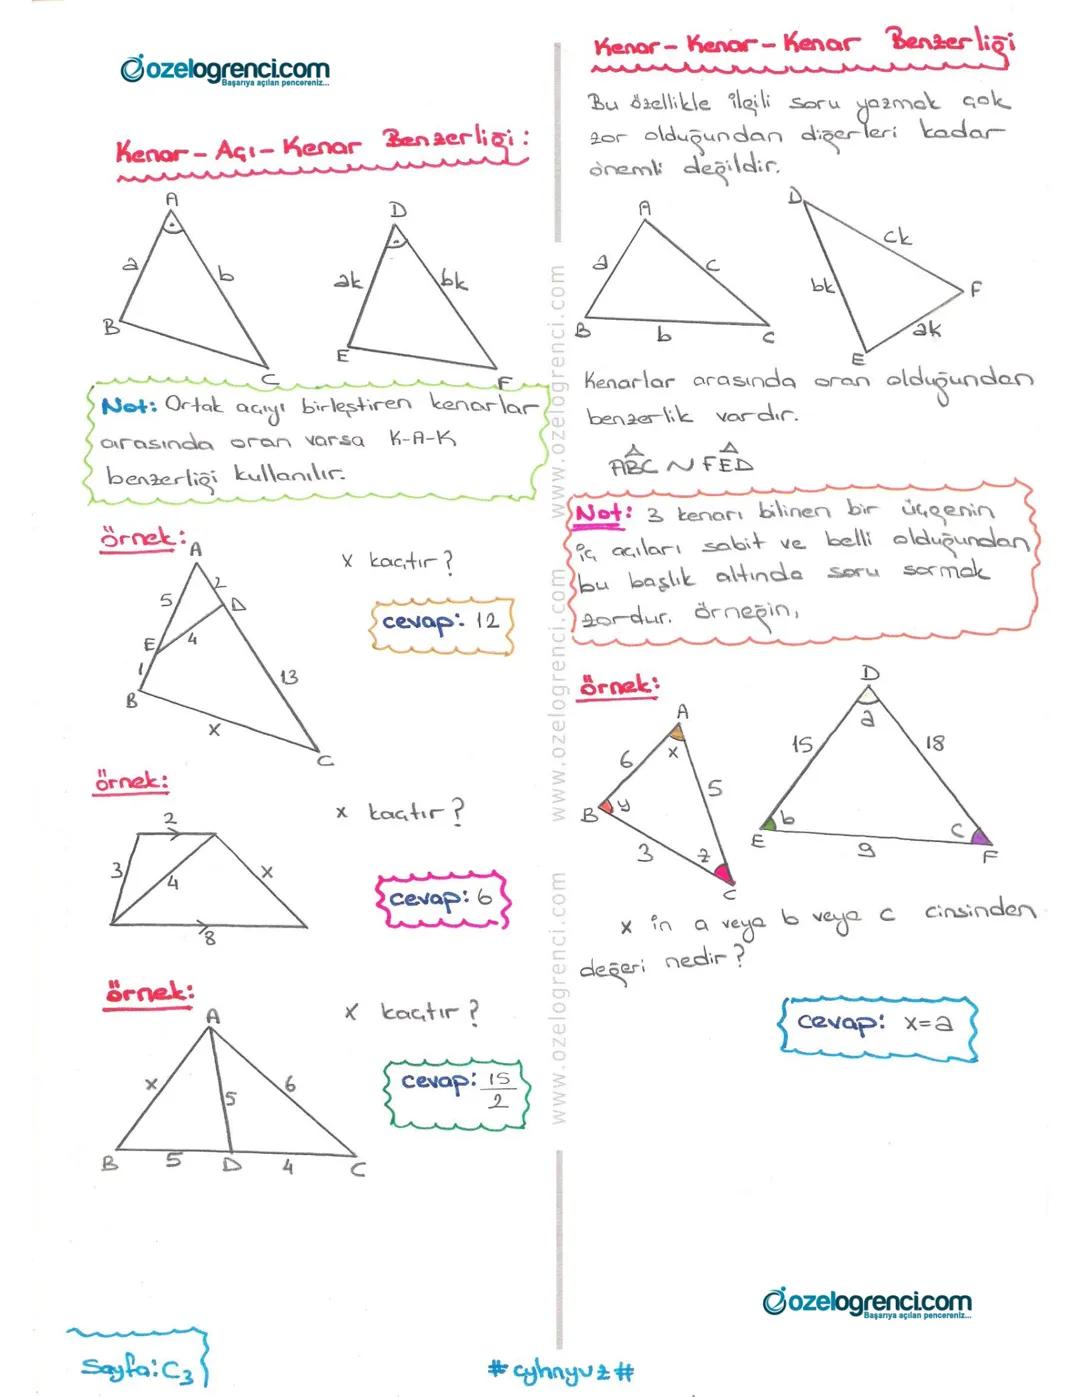 ozelogrenci.com
Başarıya açılan pencereniz...
Kenar - Açı - Kenar Benzerliği:
A
D
a
b
ak
bk
B
E
C
F
Not: Ortak açıyı birleştiren kenarlar
arasında oran varsa K-A-K
benzerliği kullanılır.
örnek:
x kaçtır?
A
2
5
D
E
4
cevap: 12
1
13
B
x
C
örnek:
x kaçtır?
2
3
4
x
cevap: 6
8
örnek:
x kaçtır?
A
x
5
6
cevap: 15/2
B
5
D
4
C
Sayfa: C3
www.ozelogrenci.com www.ozelogrenci.com www.ozelogrenci.com
Kenar - Kenar - Kenar Benzerliği
Bu özellikle ilgili soru yazmak çok
zor olduğundan diğerleri kadar
önemli değildir.
A
D
a
c
ck
bk
F
B
b
C
ak
E
Kenarlar arasında oran olduğundan
benzerlik vardır.
ABC ~ FED
Not: 3 kenarı bilinen bir üçgenin
iç açıları sabit ve belli olduğundan
bu başlık altında soru sormak
zordur. Örneğin,
örnek:
D
A
a
6
x
15
18
5
B
y
b
c
E
3
z
9
F
C
x in a veya b veya c cinsinden
değeri nedir?
cevap: x=a
ozelogrenci.com
Başarıya açılan pencereniz...
# cyhnyvz #